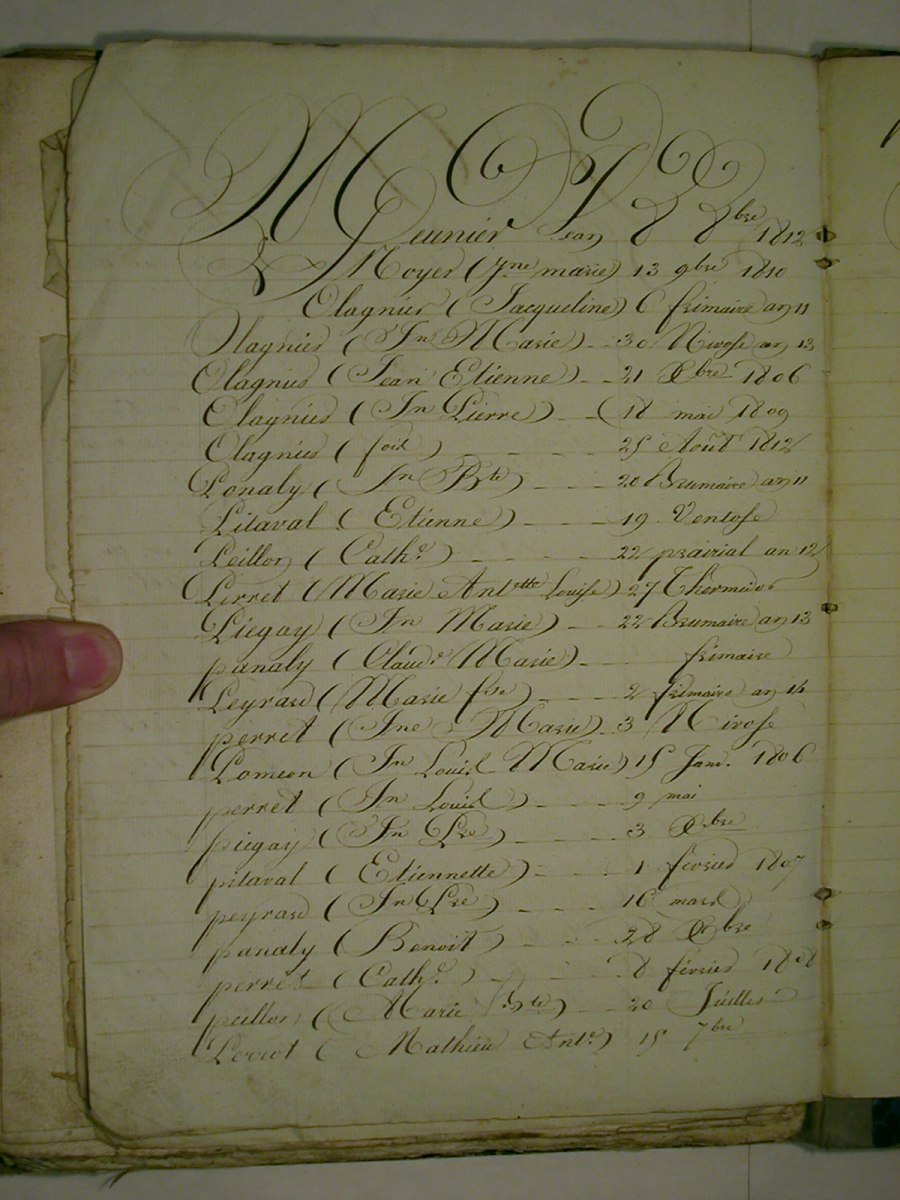 Meunier Jean 8 8bre 1812
Moyer (Jne marie) 13 9bre 1810
Olagnier (Jacqueline) 6 frimaire an 11
Olagnier (Jn Marie) -- 30 Nivose an 13
Olagnier (Jean Etienne) -- 21 Xbre 1806
Olagnier (Jn Pierre) -- 18 mai 1809
Olagnier ( ) - - - - 25 Août 1812
Panaly (Jn Bte) - - - 20 Brumaire an 11
Pitaval (Etienne) - - - 19 Ventose
Peillon (Cathe) - - - - 22 prairial an 12
Perret (Marie Antette Louise) 27 Thermidor
Piegay (Jn Marie) -- 22 Brumaire an 13
panaly (Claude Marie) - frimaire
Peyrard (Marie fse) - - - 2 frimaire an 14
perret (Jne Marie) 3 Nivose
Pomeon (Jn Louis Marie) 15 Janv. 1806
perret (Jn Louis) - - - 9 mai
piegay (Jn Pre) - - - - 3 Xbre
pitaval (Etiennette) - - - 1 fevrier 1807
peyrard (Jn Pre) - - - - 16 mars
panaly (Benoit) - - - 28 Xbre
perret (Cathe) - - - 8 février 1808
peillon (Marie Bte) - - 20 Juillet
Perret (Mathieu Ante) 15 7bre